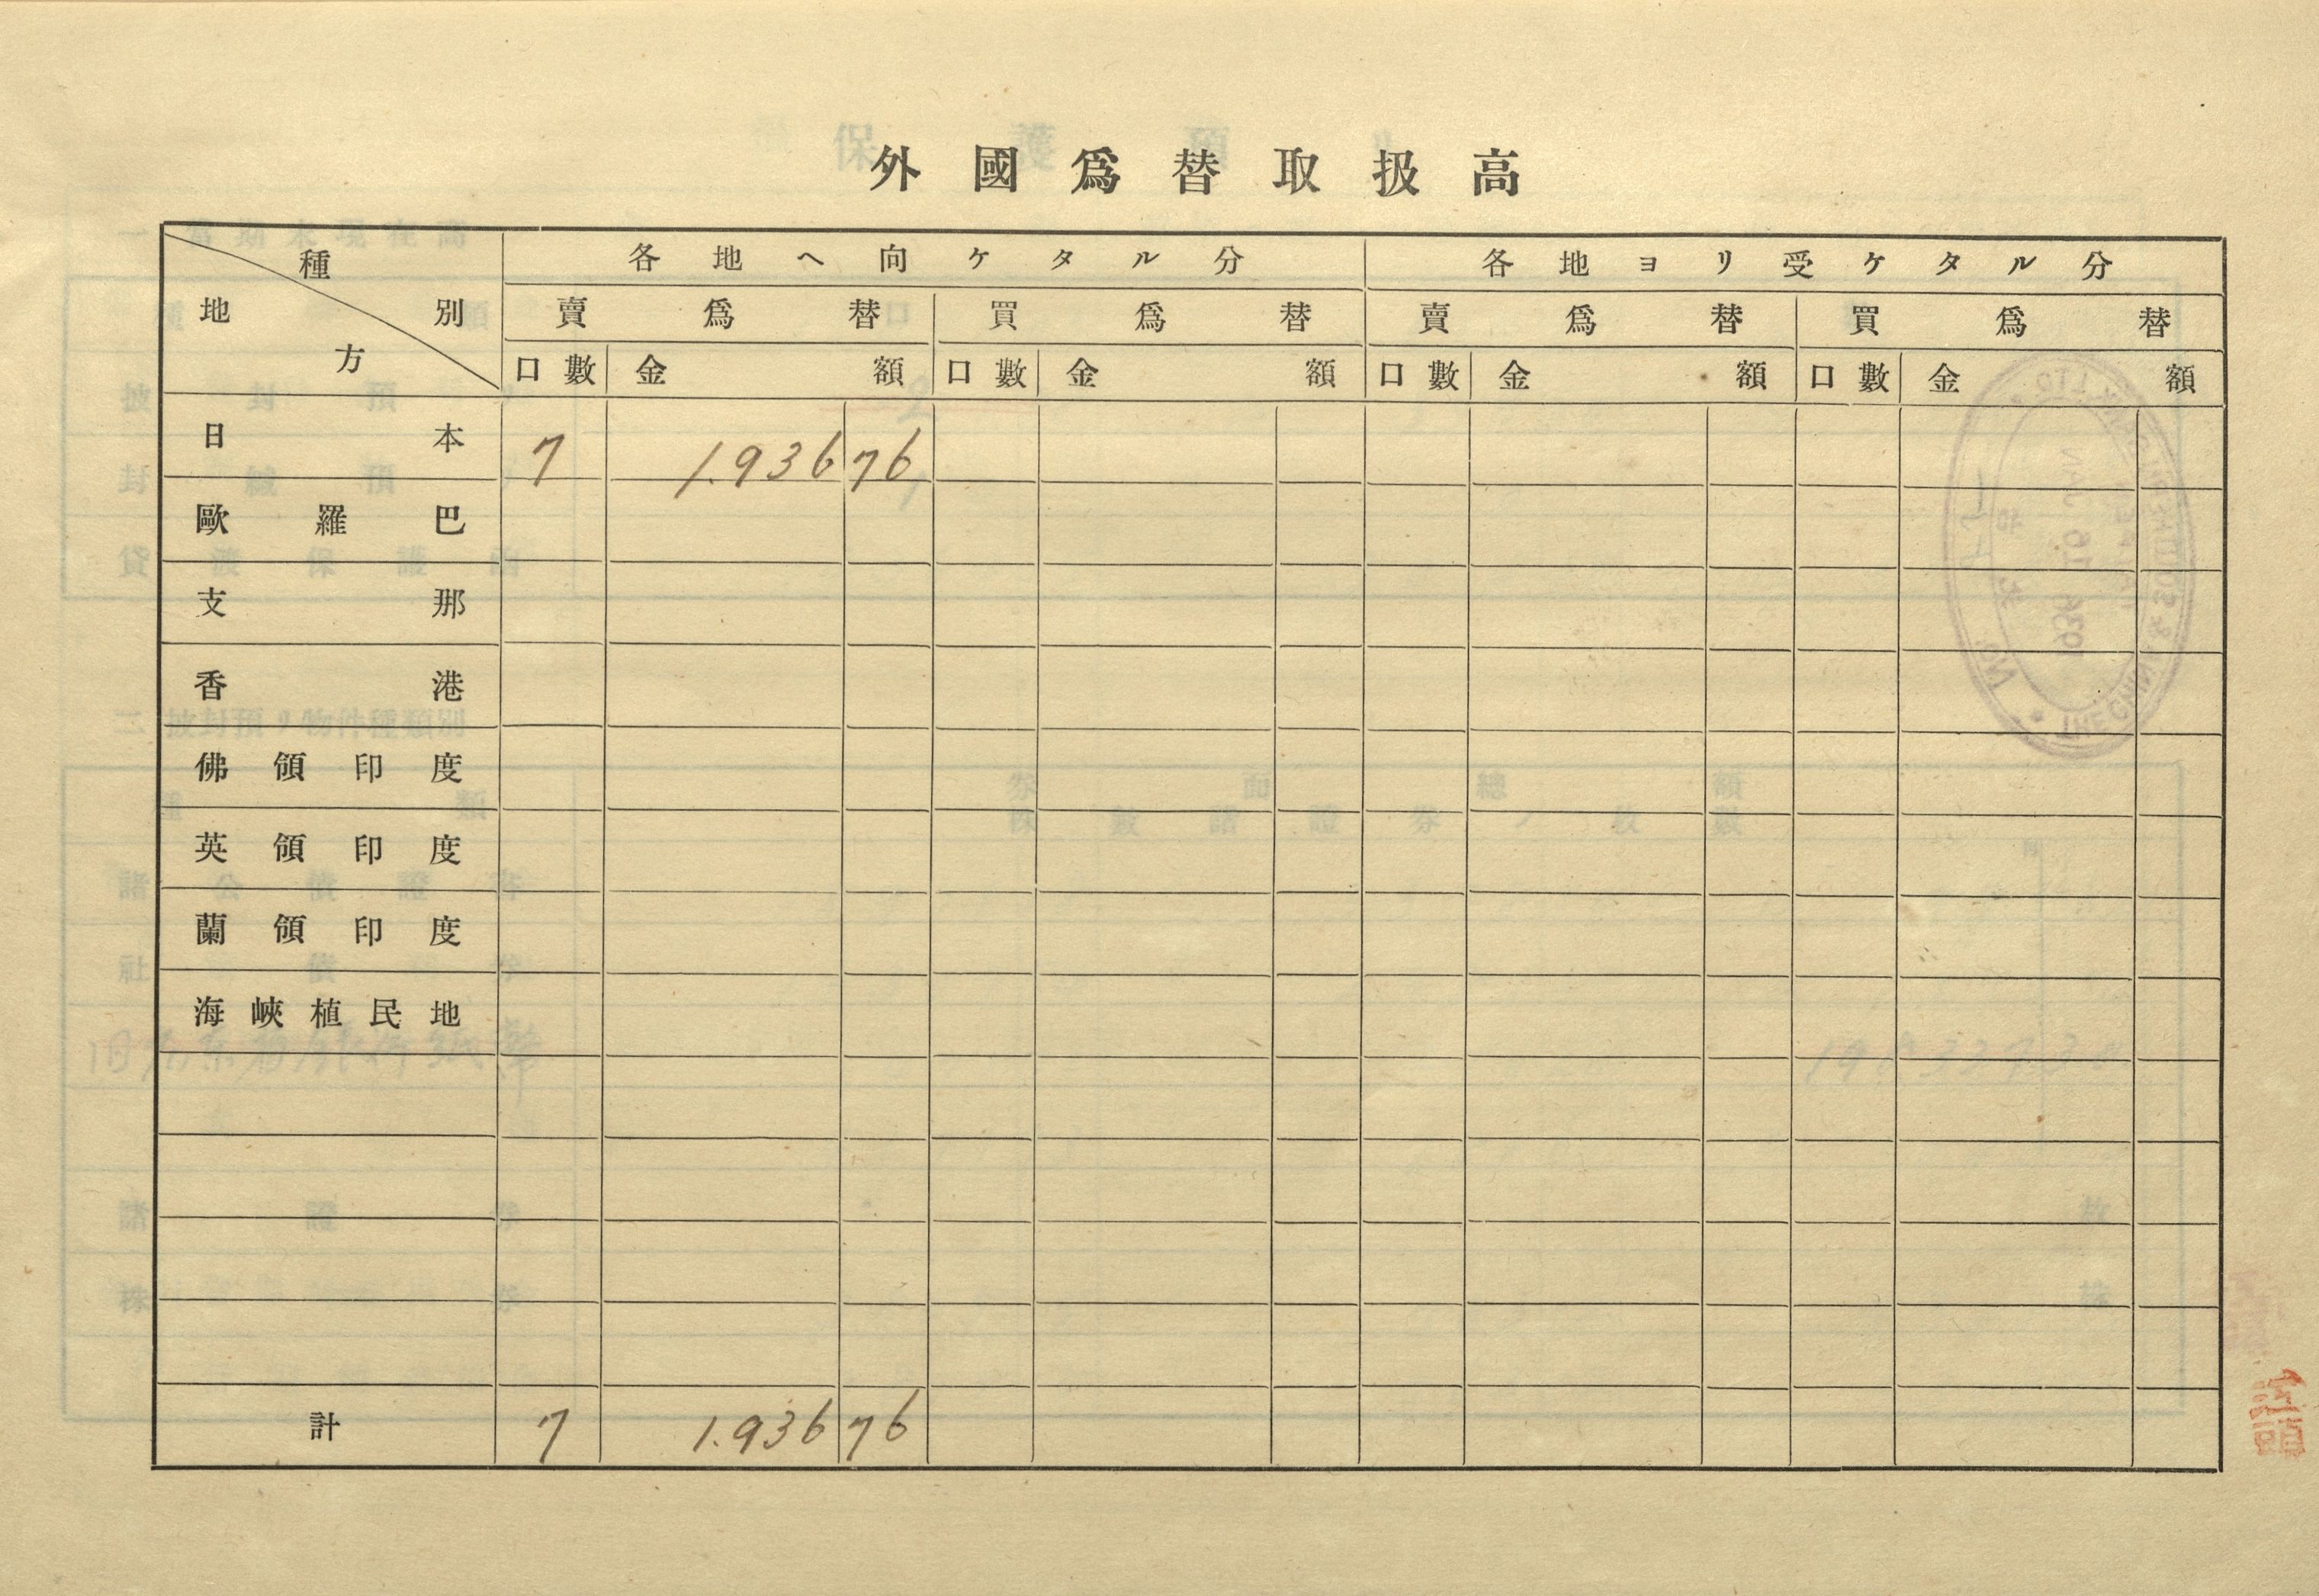 外國爲替取扱高
種別 地方 各地ヘ向ケタル分 各地ヨリ受ケタル分
賣爲替 買爲替 賣爲替 買爲替
口數 金額 口數 金額 口數 金額 口數 金額
日本 7 1.936 76
歐羅巴
支那
香港
佛領印度
英領印度
蘭領印度
海峽植民地
計 7 1.936 76